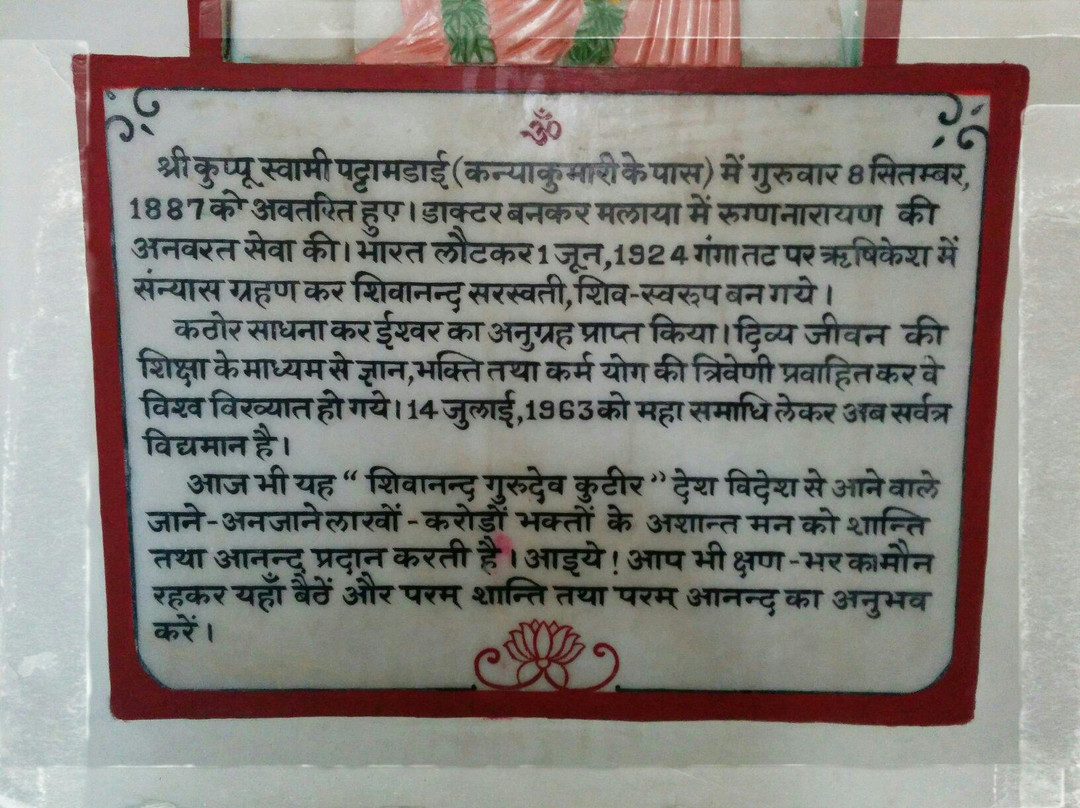 ॐ
श्री कुप्पू स्वामी पट्टामडाई (कन्याकुमारी के पास) में गुरुवार 8 सितम्बर,
1887 को अवतरित हुए। डाक्टर बनकर मलाया में रुग्ण नारायण की
अनवरत सेवा की। भारत लौटकर 1 जून, 1924 गंगा तट पर ऋषिकेश में
संन्यास ग्रहण कर शिवानन्द सरस्वती, शिव-स्वरुप बन गये।
कठोर साधना कर ईश्वर का अनुग्रह प्राप्त किया। दिव्य जीवन की
शिक्षा के माध्यम से ज्ञान, भक्ति तथा कर्म योग की त्रिवेणी प्रवाहित कर वे
विश्व विख्यात हो गये। 14 जुलाई, 1963 को महा समाधि लेकर अब सर्वत्र
विद्यमान है।
आज भी यह “ शिवानन्द गुरुदेव कुटीर ” देश विदेश से आने वाले
जाने-अनजाने लाखों - करोडों भक्तों के अशान्त मन को शान्ति
तथा आनन्द प्रदान करती है। आइये! आप भी क्षण-भर का मौन
रहकर यहाँ बैठें और परम् शान्ति तथा परम् आनन्द का अनुभव
करें।